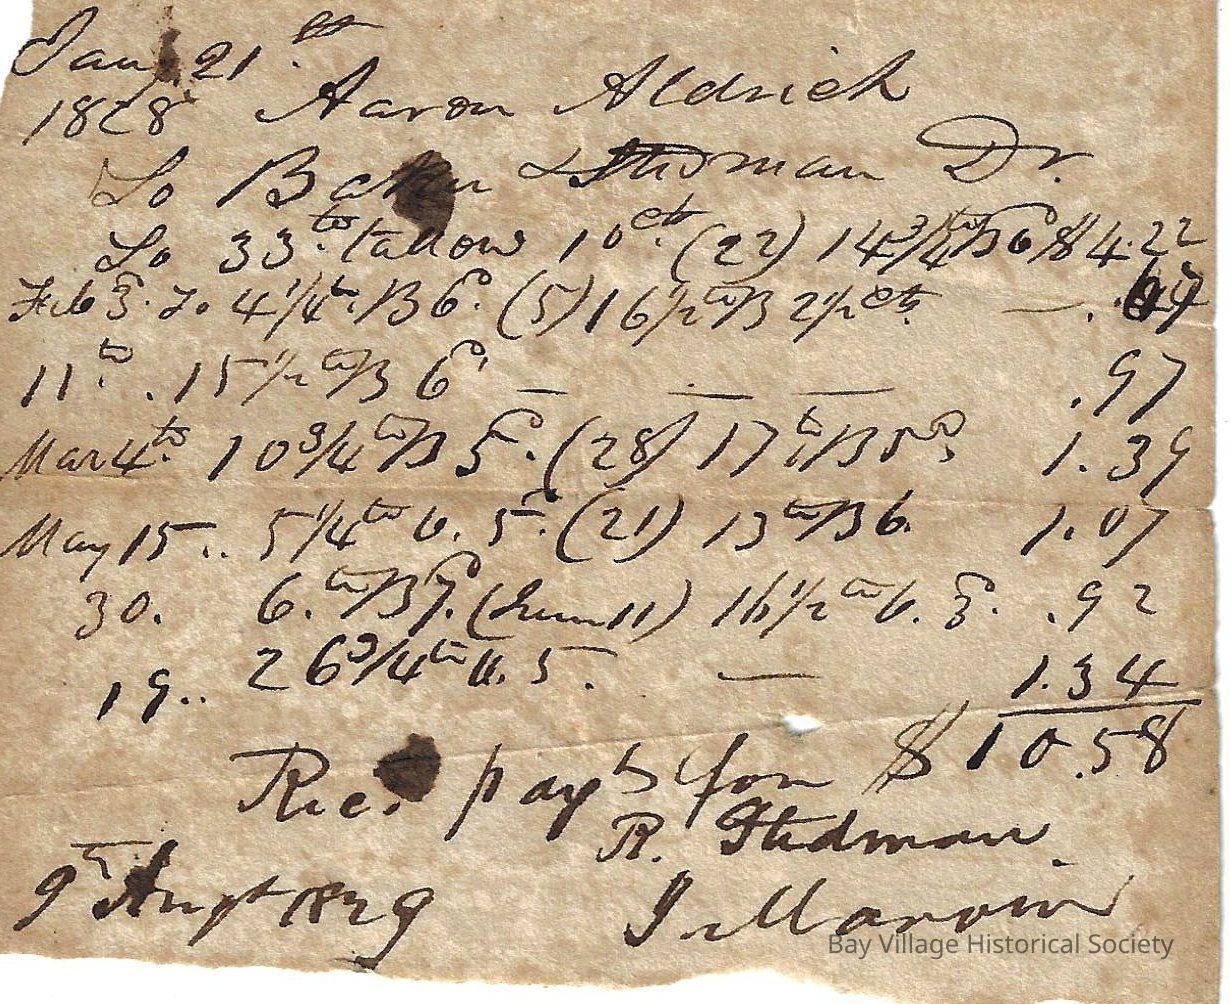 Jany 21st
1828 Aaron Aldrich
To Baker & Studman Dr.
To 33 lb tallow 10 cts (22) 14 3/4 lb B 6 $4.22
Feb 3. To 4 1/4 lb B 6. (5) 16 1/2 lb B 2 1/2 cts — .67
11th. 15 1/2 lb B 6 — — — .97
Mar 4th 10 3/4 lb B 5. (28) 17 lb B 5 1.39
May 15.. 5 1/4 lb 5. (21) 13 lb B 6. 1.07
30. 6. lb B 7. (June 11) 16 1/2 lb 3. .92
19.. 26 3/4 lb 5. — 1.34
$10.58
Rec. payt for
R. Studman
9th Augt 1829 J. Marvin
Bay Village Historical Society